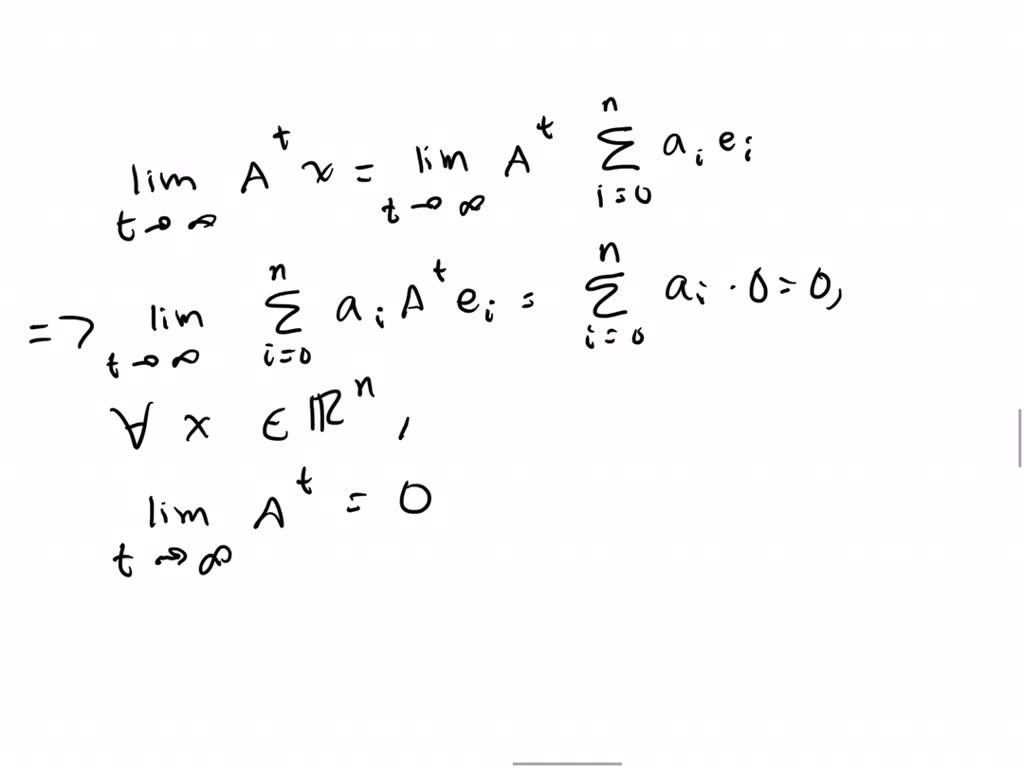 lim_{t→∞} A^t x = lim_{t→∞} A^t ∑_{i=0}^{n} a_i e_i
=> lim_{t→∞} ∑_{i=0}^{n} a_i A^t e_i = ∑_{i=0}^{n} a_i · 0 = 0,
∀ x ∈ ℝ^n,
lim_{t→∞} A^t = 0